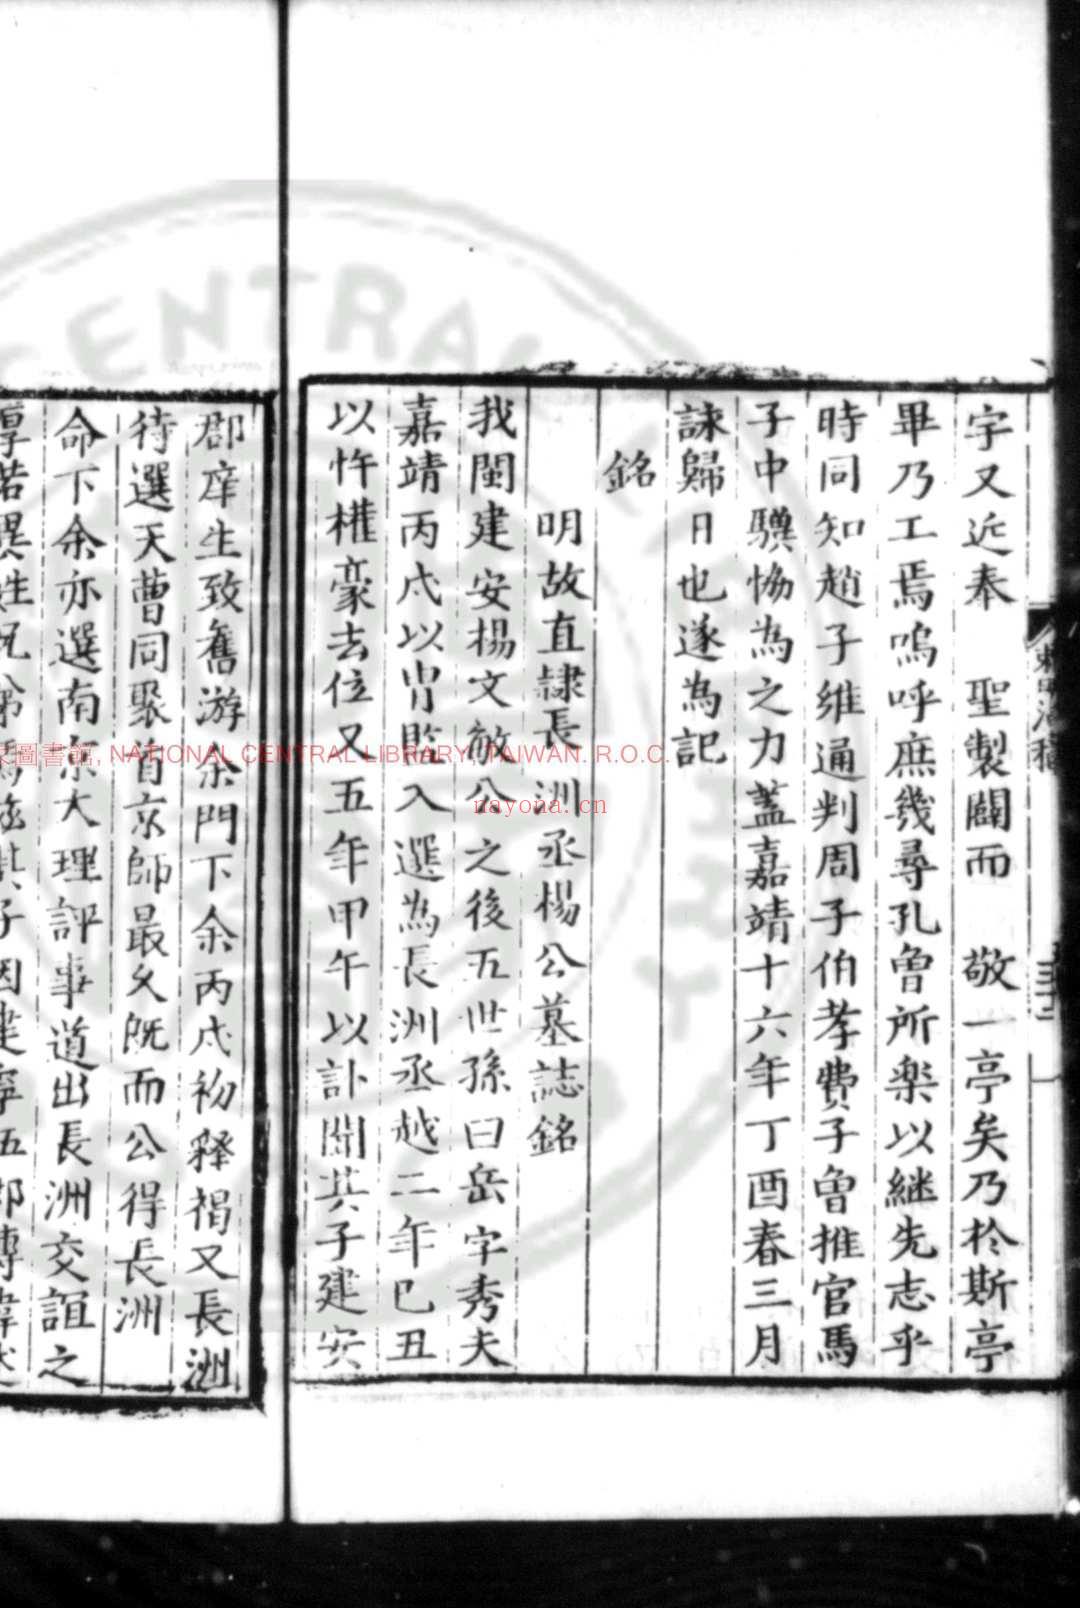 字又近奉　聖製闢而　敬一亭矣乃於斯亭
畢乃工焉嗚呼庶幾尋孔魯所楽以継先志乎
時同知趙子維通判周子伯孝費子魯推官馬
子中驥恊為之力蓋嘉靖十六年丁酉春三月
諫歸日也遂為記
銘
明故直隷長洲丞楊公墓誌銘
我閩建安楊文敏公之後五世孫曰岳字秀夫
嘉靖丙戌以胄監入選為長洲丞越二年巳丑
以忤權豪去位又五年甲午以訃聞其子建安
郡庠生致舊游余門下余丙戌初釋褐又長洲
待選天曹同聚首京師最久既而公得長洲
命下余亦選南京大理評事道出長洲交誼之
NATIONAL CENTRAL LIBRARY, TAIWAN. R.O.C.
nayona.cn